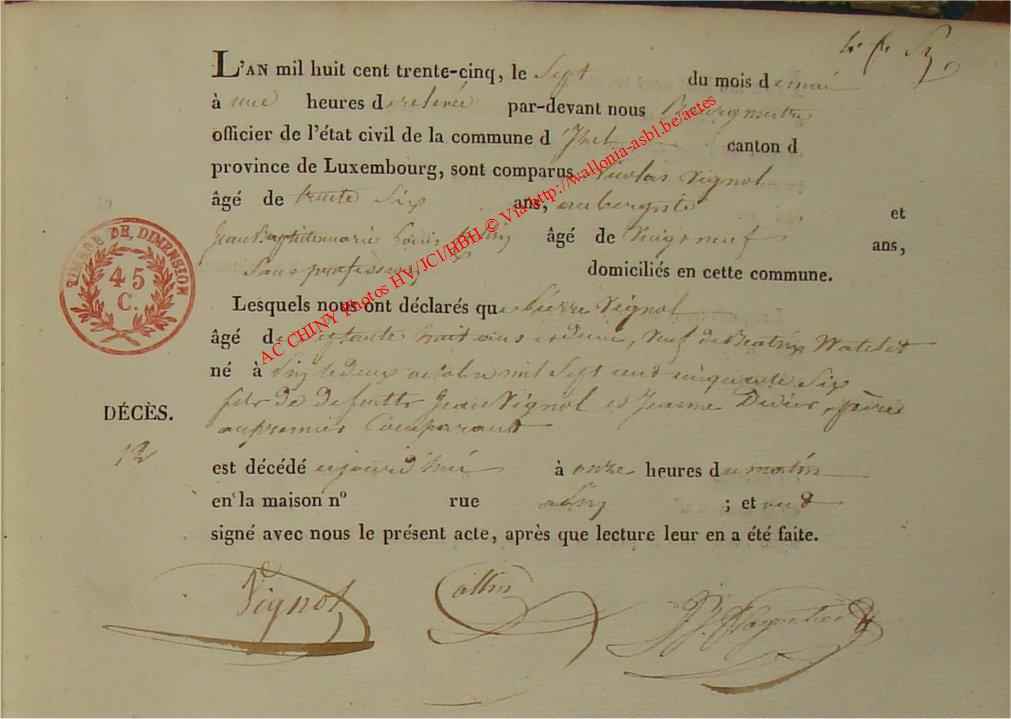 L'AN mil huit cent trente-cinq, le Sept du mois de mai
à une heures de relevée par-devant nous Bourgmestre
officier de l'état civil de la commune d canton d
province de Luxembourg, sont comparus Nicolas Vignol
âgé de trente Six ans, aubergiste et
Jean Baptiste marie Louis âgé de Vingt neuf ans,
Sans profession, domiciliés en cette commune.
Lesquels nous ont déclarés que Pierre Vignol
âgé de Septante huit ans et demi, Veuf de Beatrix Watelet
né à le deux octobre mil Sept cent cinquante Six
fils de defunts Jean Vignol et Jeanne Didier, père
au premier Comparant
DÉCÈS.
12
est décédé aujourd'hui à onze heures du matin
en la maison n° rue ; et ont
signé avec nous le présent acte, après que lecture leur en a été faite.
Vignol Collin
TIMBRE DE DIMENSION
45
C.
AC CHINY Photos HV/JCl/HBH © Via http://wallonia-asbl.be/actes